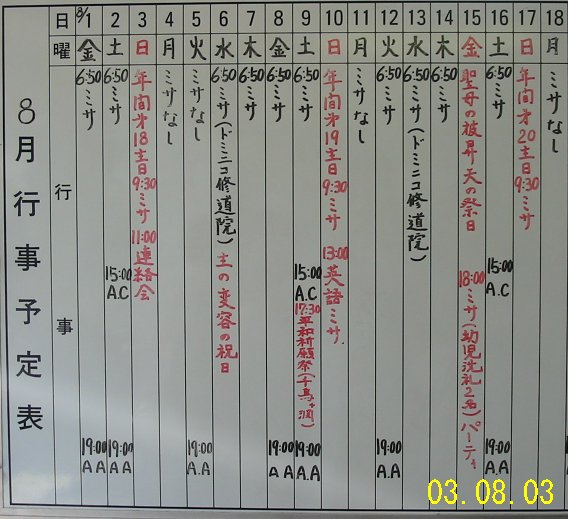 8月行事予定表
日 8/1 2 3 4 5 6 7 8 9 10 11 12 13 14 15 16 17 18
曜 金 土 日 月 火 水 木 金 土 日 月 火 水 木 金 土 日 月
行事
6:50 ミサ 19:00 AA
6:50 ミサ 15:00 A.C 19:00 AA
年間才18主日 9:30 ミサ 11:00 連絡会
ミサなし
ミサなし 19:00 A.A
6:50 ミサ(ドミニコ修道院) 主の変容の祝日
6:50 ミサ
6:50 ミサ 19:00 AA
6:50 ミサ 15:00 A.C 17:30 平和祈願祭(千鳥ヶ淵) 19:00 A.A
年間才19主日 9:30 ミサ 13:00 英語ミサ
ミサなし
6:50 ミサ 19:00 A.A
6:50 ミサ(ドミニコ修道院)
6:50 ミサ
聖母の被昇天の祭日 18:00 ミサ(幼児洗礼2名)パーティ
6:50 ミサ 15:00 A.C 19:00 A.A
年間才20主日 9:30 ミサ
ミサなし
03.08.03